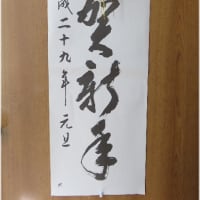 賀新年
成二十九年 元旦